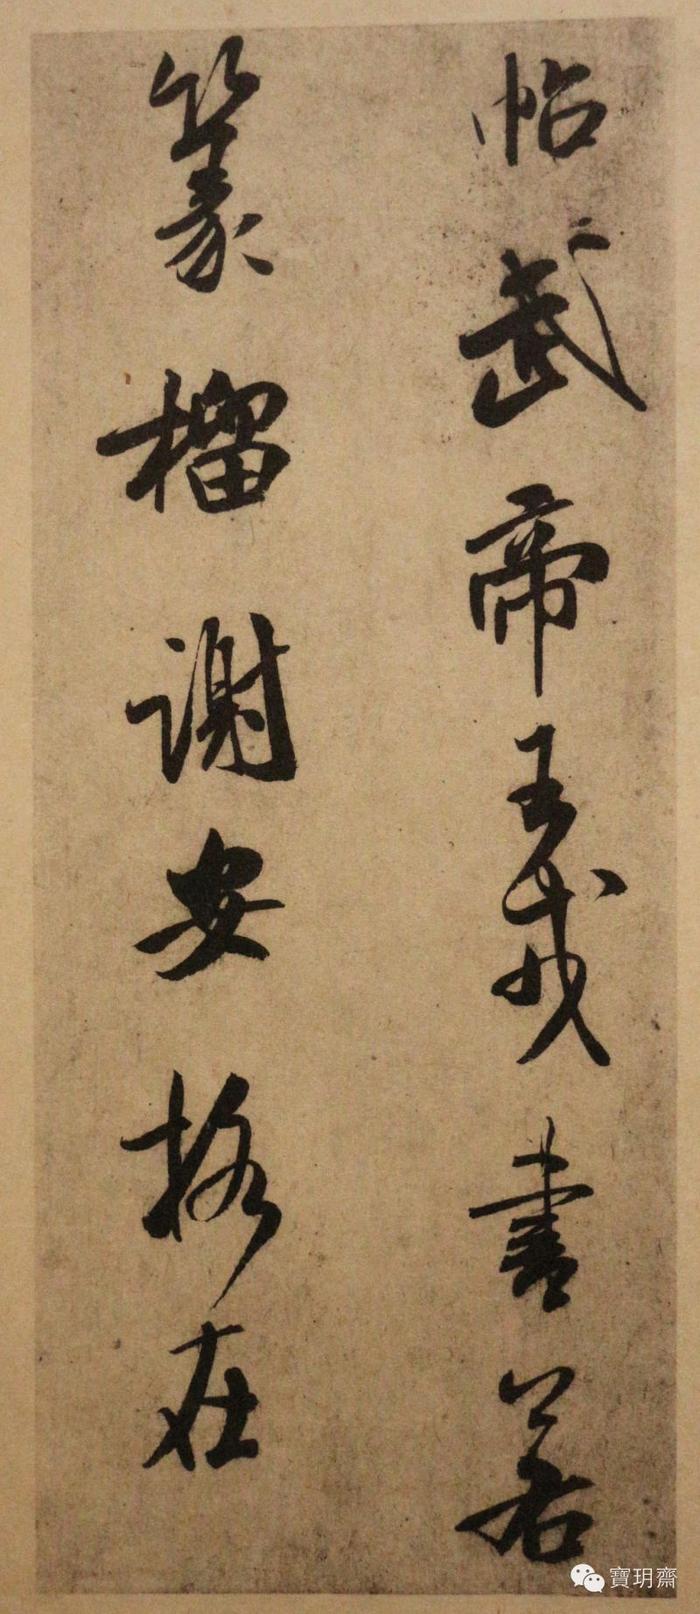 帖武帝王戎書若
篆榴謝安格在
寶玥齋